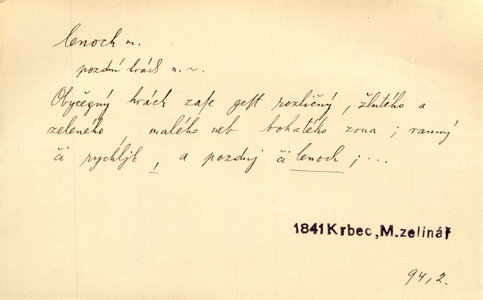 lenoch m.
pozdní hrách n. ~.
Obyčegný hrách zase gest rozličný, žlutého a
zeleného, malého neb bohatého zrna; ranný
či rychljk, a pozdnj či lenoch; ...
1841 Krbec, M. zelinář
94, 2.